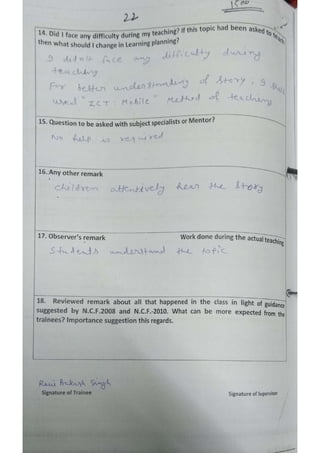 22
14. Did I face any difficulty during my teaching? If this topic had been asked to teach
then what should I change in Learning planning?
I didn't face any difficulty during
teaching
For better understanding of story, I
used "ICT: Mobile" Method of teaching
15. Question to be asked with subject specialists or Mentor?
No help is required
16. Any other remark
children attentively hear the story
17. Observer's remark Work done during the actual teaching
Students understand the topic
18. Reviewed remark about all that happened in the class in light of guidance
suggested by N.C.F.2008 and N.C.F.-2010. What can be more expected from the
trainees? Importance suggestion this regards.
Singh
Signature of Trainee Signature of Supervisor